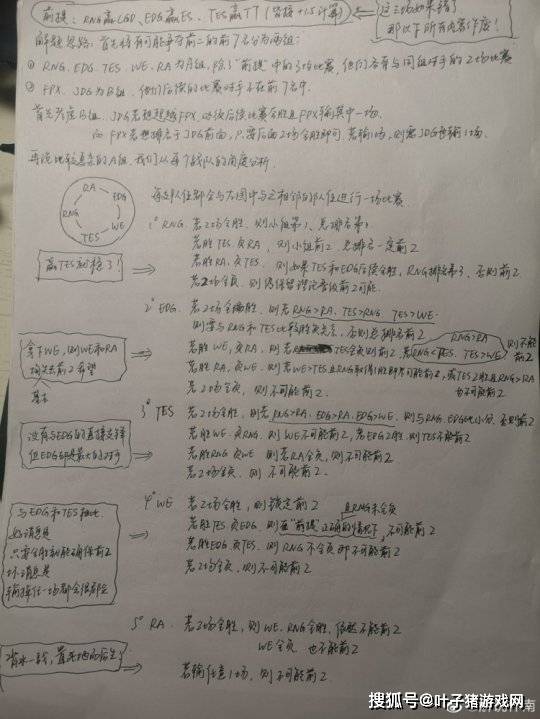 前提：RNG赢LGD、EDG赢ES、TES赢TT（皆按+1.5计算）
这三场如果错了
那以下所有内容作废！
解题思路：首先将有可能争夺前二的前7名分为两组：
① RNG、EDG、TES、WE、RA为A组，除了"前提"中的3场比赛，他们各有与同组对手的2场比赛
② FPX、JDG为B组，他们后续的比赛对手不在前7名中.
首先考虑B组，JDG若想超越FPX，必须后续比赛全胜且FPX输其中一场.
而FPX若想排名于JDG前面，只需后面2场全胜即可，若输1场，则需JDG也输1场.
再说比较复杂的A组，我们从每个战队的角度分析.
RA
EDG
WE
TES
RNG
每支队伍都会与左图中与之相邻的队伍进行一场比赛
1° RNG 若2场全胜，则小组第1、总排名第1
若胜TES、负RA，则小组前2，总排名一定前2
若胜RA、负TES，则如果TES和EDG后续全胜，RNG排名第3，否则前2
若2场全负，则
赢TES就稳了！
2° EDG 若2场全胜，则若RNG>RA、TES>RNG、TES>WE.
则需与RNG和TES比较胜负关系，否则总排名前2
若胜WE、负RA，则若TES全负则前2，若RNG<TES、TES>WE
RNG>RA
则不能前2
若胜RA、负WE，则若WE>TES且RNG取得1胜即不可能前2，或TES2胜且RNG>RA
也不可能前2
若2场全负，则不可能前2.
拿下WE，则WE和RA
基本
3° TES 若2场全胜，则若RNG>RA、EDG>RA、EDG>WE，则与RNG、EDG比小分，否则前2
若胜WE、负RNG，则WE不可能前2，若EDG2胜，则TES不能前2
若胜RNG、负WE，则若RA全负，则不可能前2
若2场全负，则不可能前2.
没有与EDG的直接交锋
但EDG却是最大的对手
4° WE 若2场全胜，则锁定前2
且RNG不全负
若胜TES、负EDG，则在"前提"正确的情况下，不可能前2
若胜EDG、负TES，则RNG不全负即不可能前2
若2场全负，则不可能前2
与EDG和TES相比
好消息是
只要全胜就能确保前2
坏消息是
输掉任一场都会很难受
5° RA 若2场全胜，则WE、RNG全胜，依然不能前2
WE全负 也不能前2
若输任意1场，则不可能前2
背水一战，置死地而后生！
搜狐号@叶子猪游戏网